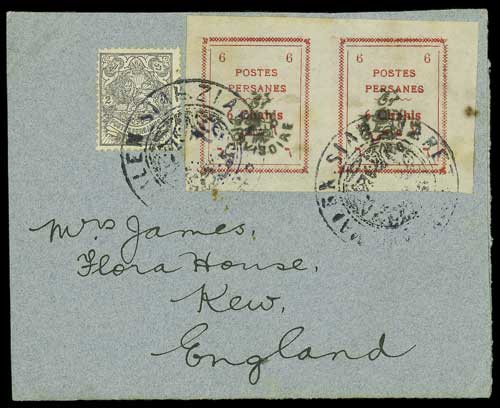 2
6 6
POSTES
PERSANES
6 Chahis
6 6
POSTES
PERSANES
6 Chahis
Mrs James,
Flora House,
Kew,
England